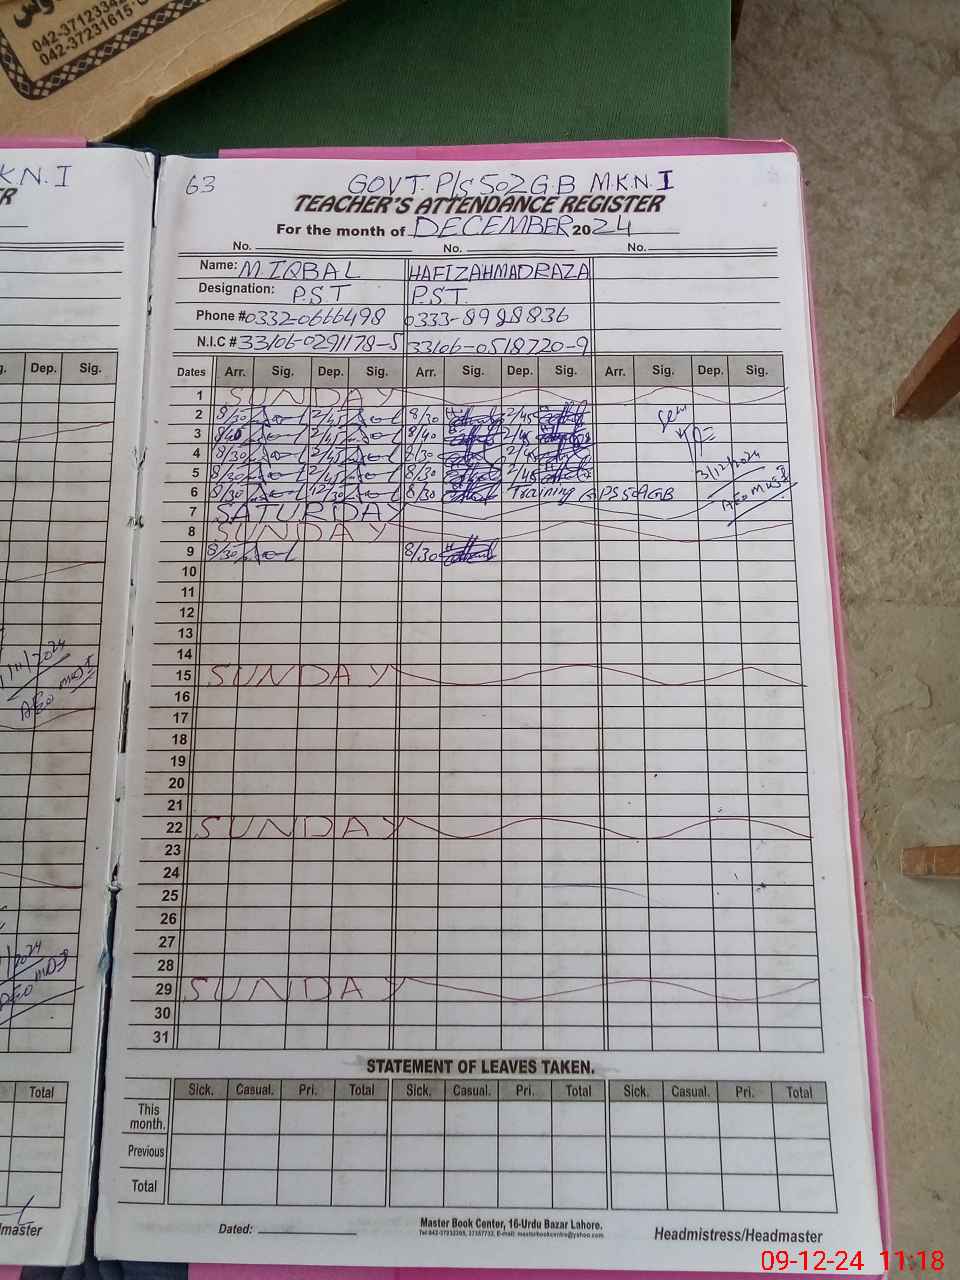 042-3712334
042-37231615
K.N. I
63
GOVT. P/S 502 G.B M.K.N I
TEACHER'S ATTENDANCE REGISTER
For the month of DECEMBER 2024
No. No. No.
Name: M. IQBAL HAFIZ AHMAD RAZA
Designation: P.S.T P.S.T.
Phone # 0332-0666498 0333-8928836
N.I.C # 33106-0291178-5 33106-0518720-9
Dep. Sig.
Dates Arr. Sig. Dep. Sig. Arr. Sig. Dep. Sig. Arr. Sig. Dep. Sig.
1 SUNDAY
2 8/30 2/45 8/30 2/45
3 8/40 2/45 8/40 2/45
4 8/30 2/45 8/30 2/45
5 8/30 2/45 8/30 2/45
3/12/2024
6 8/30 12/30 8/30 Training PS 502 GB
AEO MKN-I
7 SATURDAY
8 SUNDAY
9 8/30 8/30
10
11
12
13
14
15 SUNDAY
16
17
18
19
20
21
22 SUNDAY
23
24
25
26
27
28
29 SUNDAY
30
31
/11/2024
AEO MKN-I
/2024
AEO
STATEMENT OF LEAVES TAKEN.
Total
Sick. Casual. Pri. Total Sick. Casual. Pri. Total Sick. Casual. Pri. Total
This month.
Previous
Total
dmaster
Dated:
Master Book Center, 16-Urdu Bazar Lahore.
Headmistress/Headmaster
09-12-24 11:18